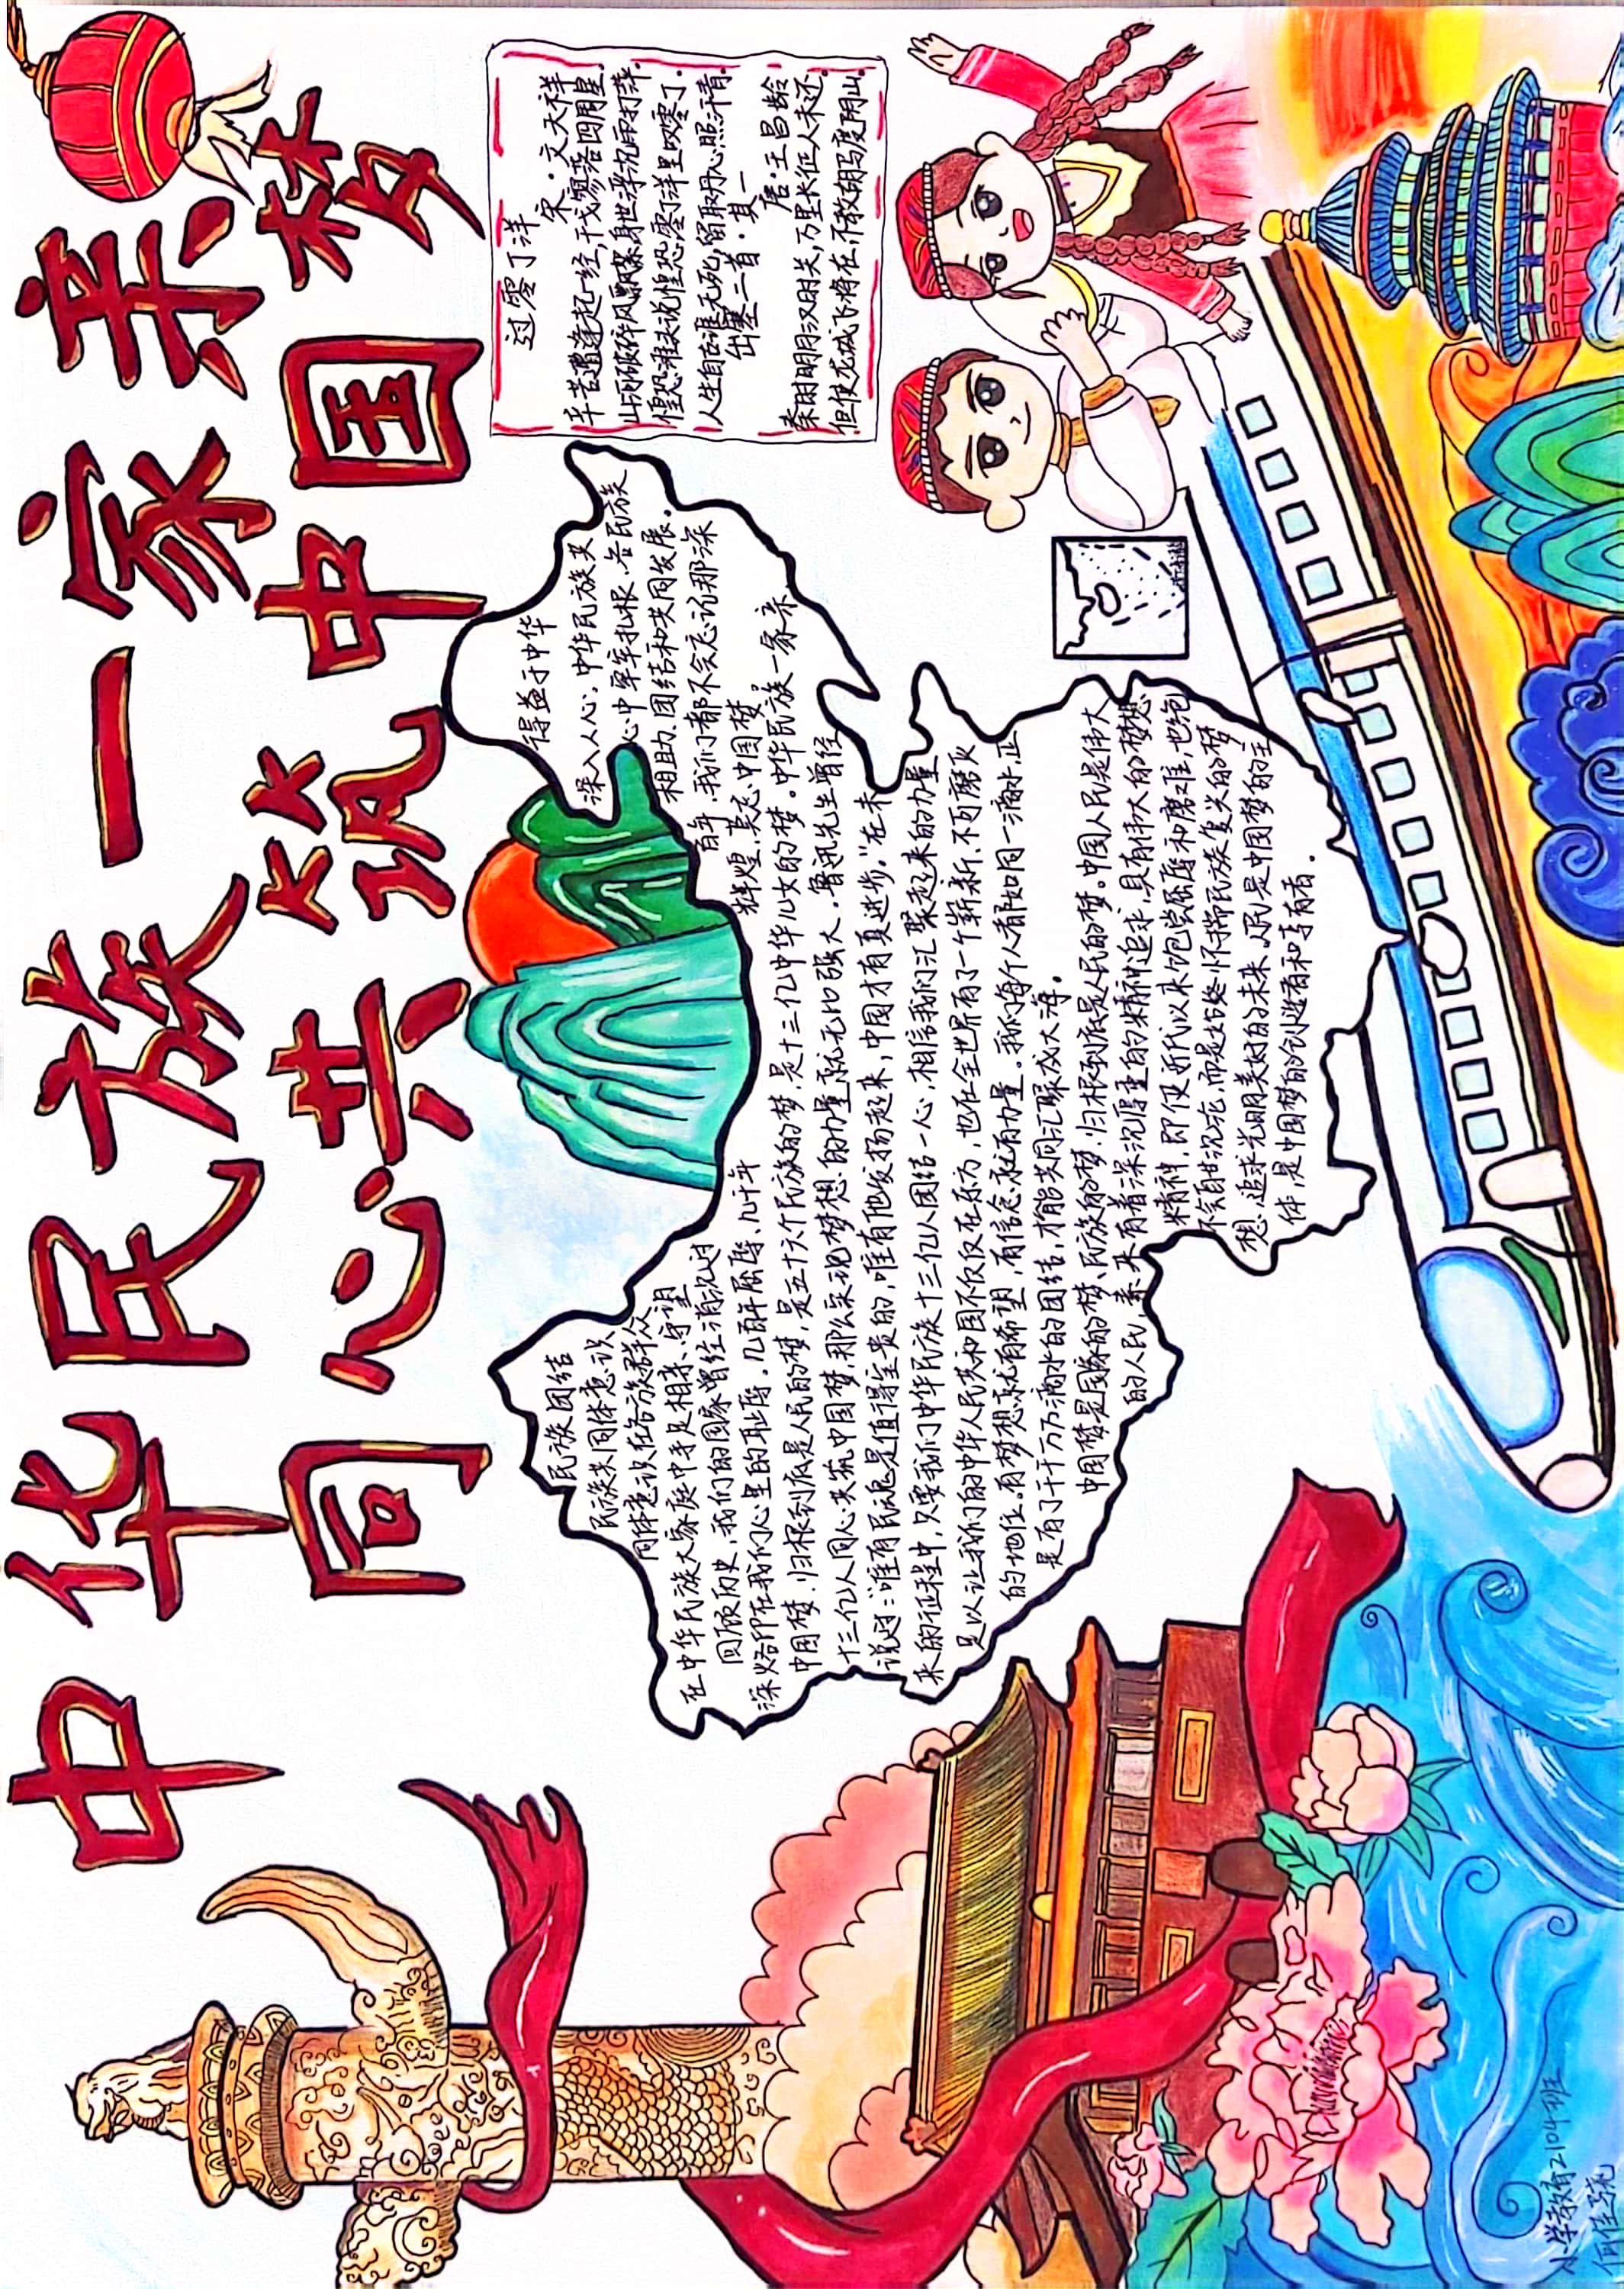 中华民族一家亲
同心共筑中国梦
过零丁洋
宋·文天祥
辛苦遭逢起一经,干戈寥落四周星.
山河破碎风飘絮,身世浮沉雨打萍.
惶恐滩头说惶恐,零丁洋里叹零丁.
人生自古谁无死,留取丹心照汗青.
出塞二首·其一
唐·王昌龄
秦时明月汉时关,万里长征人未还.
但使龙城飞将在,不教胡马度阴山.
民族团结 得益于中华
民族共同体意识 深入人心,中华民族共
同体意识在各族群众 心中牢牢扎根、各民族
在中华民族大家庭中手足相亲、守望 相助、团结和共同发展。
回顾历史,我们的国家曾经 百年,我们都不会忘记那深
深烙印在我们心里的耻辱。几百年屈辱、几千年 辉煌,莫忘中国梦。
中国梦,归根到底是人民的梦,是五十六个民族的梦,是十三亿中华儿女的梦。中华民族一家亲
十三亿人同心共筑中国梦,那么实现梦想的力量就无比强大。鲁迅先生曾经
说过:“唯有民魂是值得宝贵的,唯有他发扬起来,中国才有真进步。”在未
来的征程中,只要我们中华民族十三亿人团结一心,相信我们汇聚起来的力量
足以让我们的中华人民共和国不仅仅在东方,也在全世界有了一个崭新、不可磨灭
的地位。有梦想就有希望,有信念就有力量。我们每个人都如同一滴水,正
是有了千千万万滴水的团结,才能共同汇聚成大海。
中国梦是国家的梦、民族的梦,归根到底是人民的梦。中国人民是伟大
的人民,素来有着深沉厚重的精神追求,具有伟大的梦想
精神,即使近代以来饱尝屈辱和磨难,也绝
不自甘沉沦,而是始终怀揣民族复兴的梦
想、追求光明美好的未来。人民是中国梦的主
体,是中国梦的创造者和享有者。
小学教育2104班